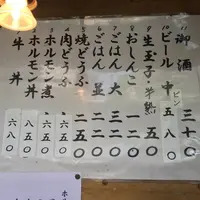 御酒 三十〇
ビール 中 ビン 五八〇
生玉子・半熟 五〇
おしんこ 一二〇
ごはん 大 二二〇
ごはん 並 一五〇
焼とうふ 二五〇
肉どうふ 六五〇
ホルモン煮 八五〇
ホルモン丼 八五〇
牛丼 六八〇